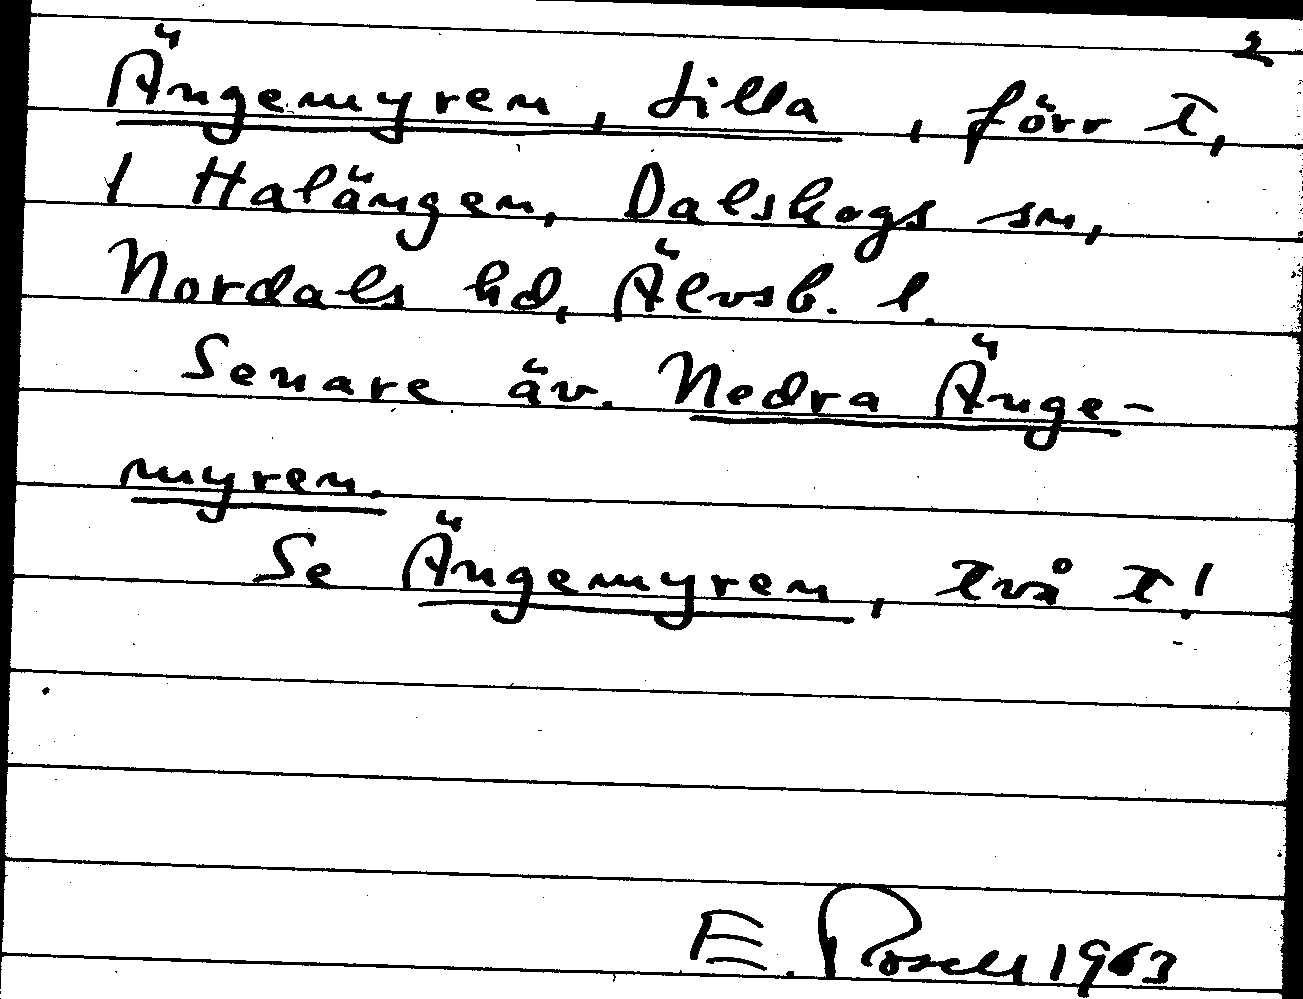 2
Ängemyren, Lilla, förr t,
1 Halängen, Dalskogs sn,
Nordals hd, Älvsb. l.
Senare äv. Nedra Änge-
myren.
Se Ängemyren, två t!
E. Rosell 1963